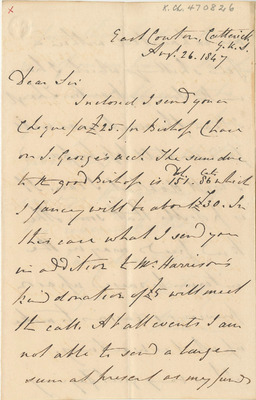 K.Ch. 470826
East Cowton, Catterick
Aug. 26. 1847
Dear Sir
Inclosed I send you a
Cheque for £25. for Bishop Chase
on S. George's acct. The sum due
to the good Bishop is 151. 86 which
I fancy will be about £30. In
this case what I send you
in addition to Mr Harrison's
kind donation of £5 will meet
the call. At all events I am
not able to send a larger
sum at present as my funds